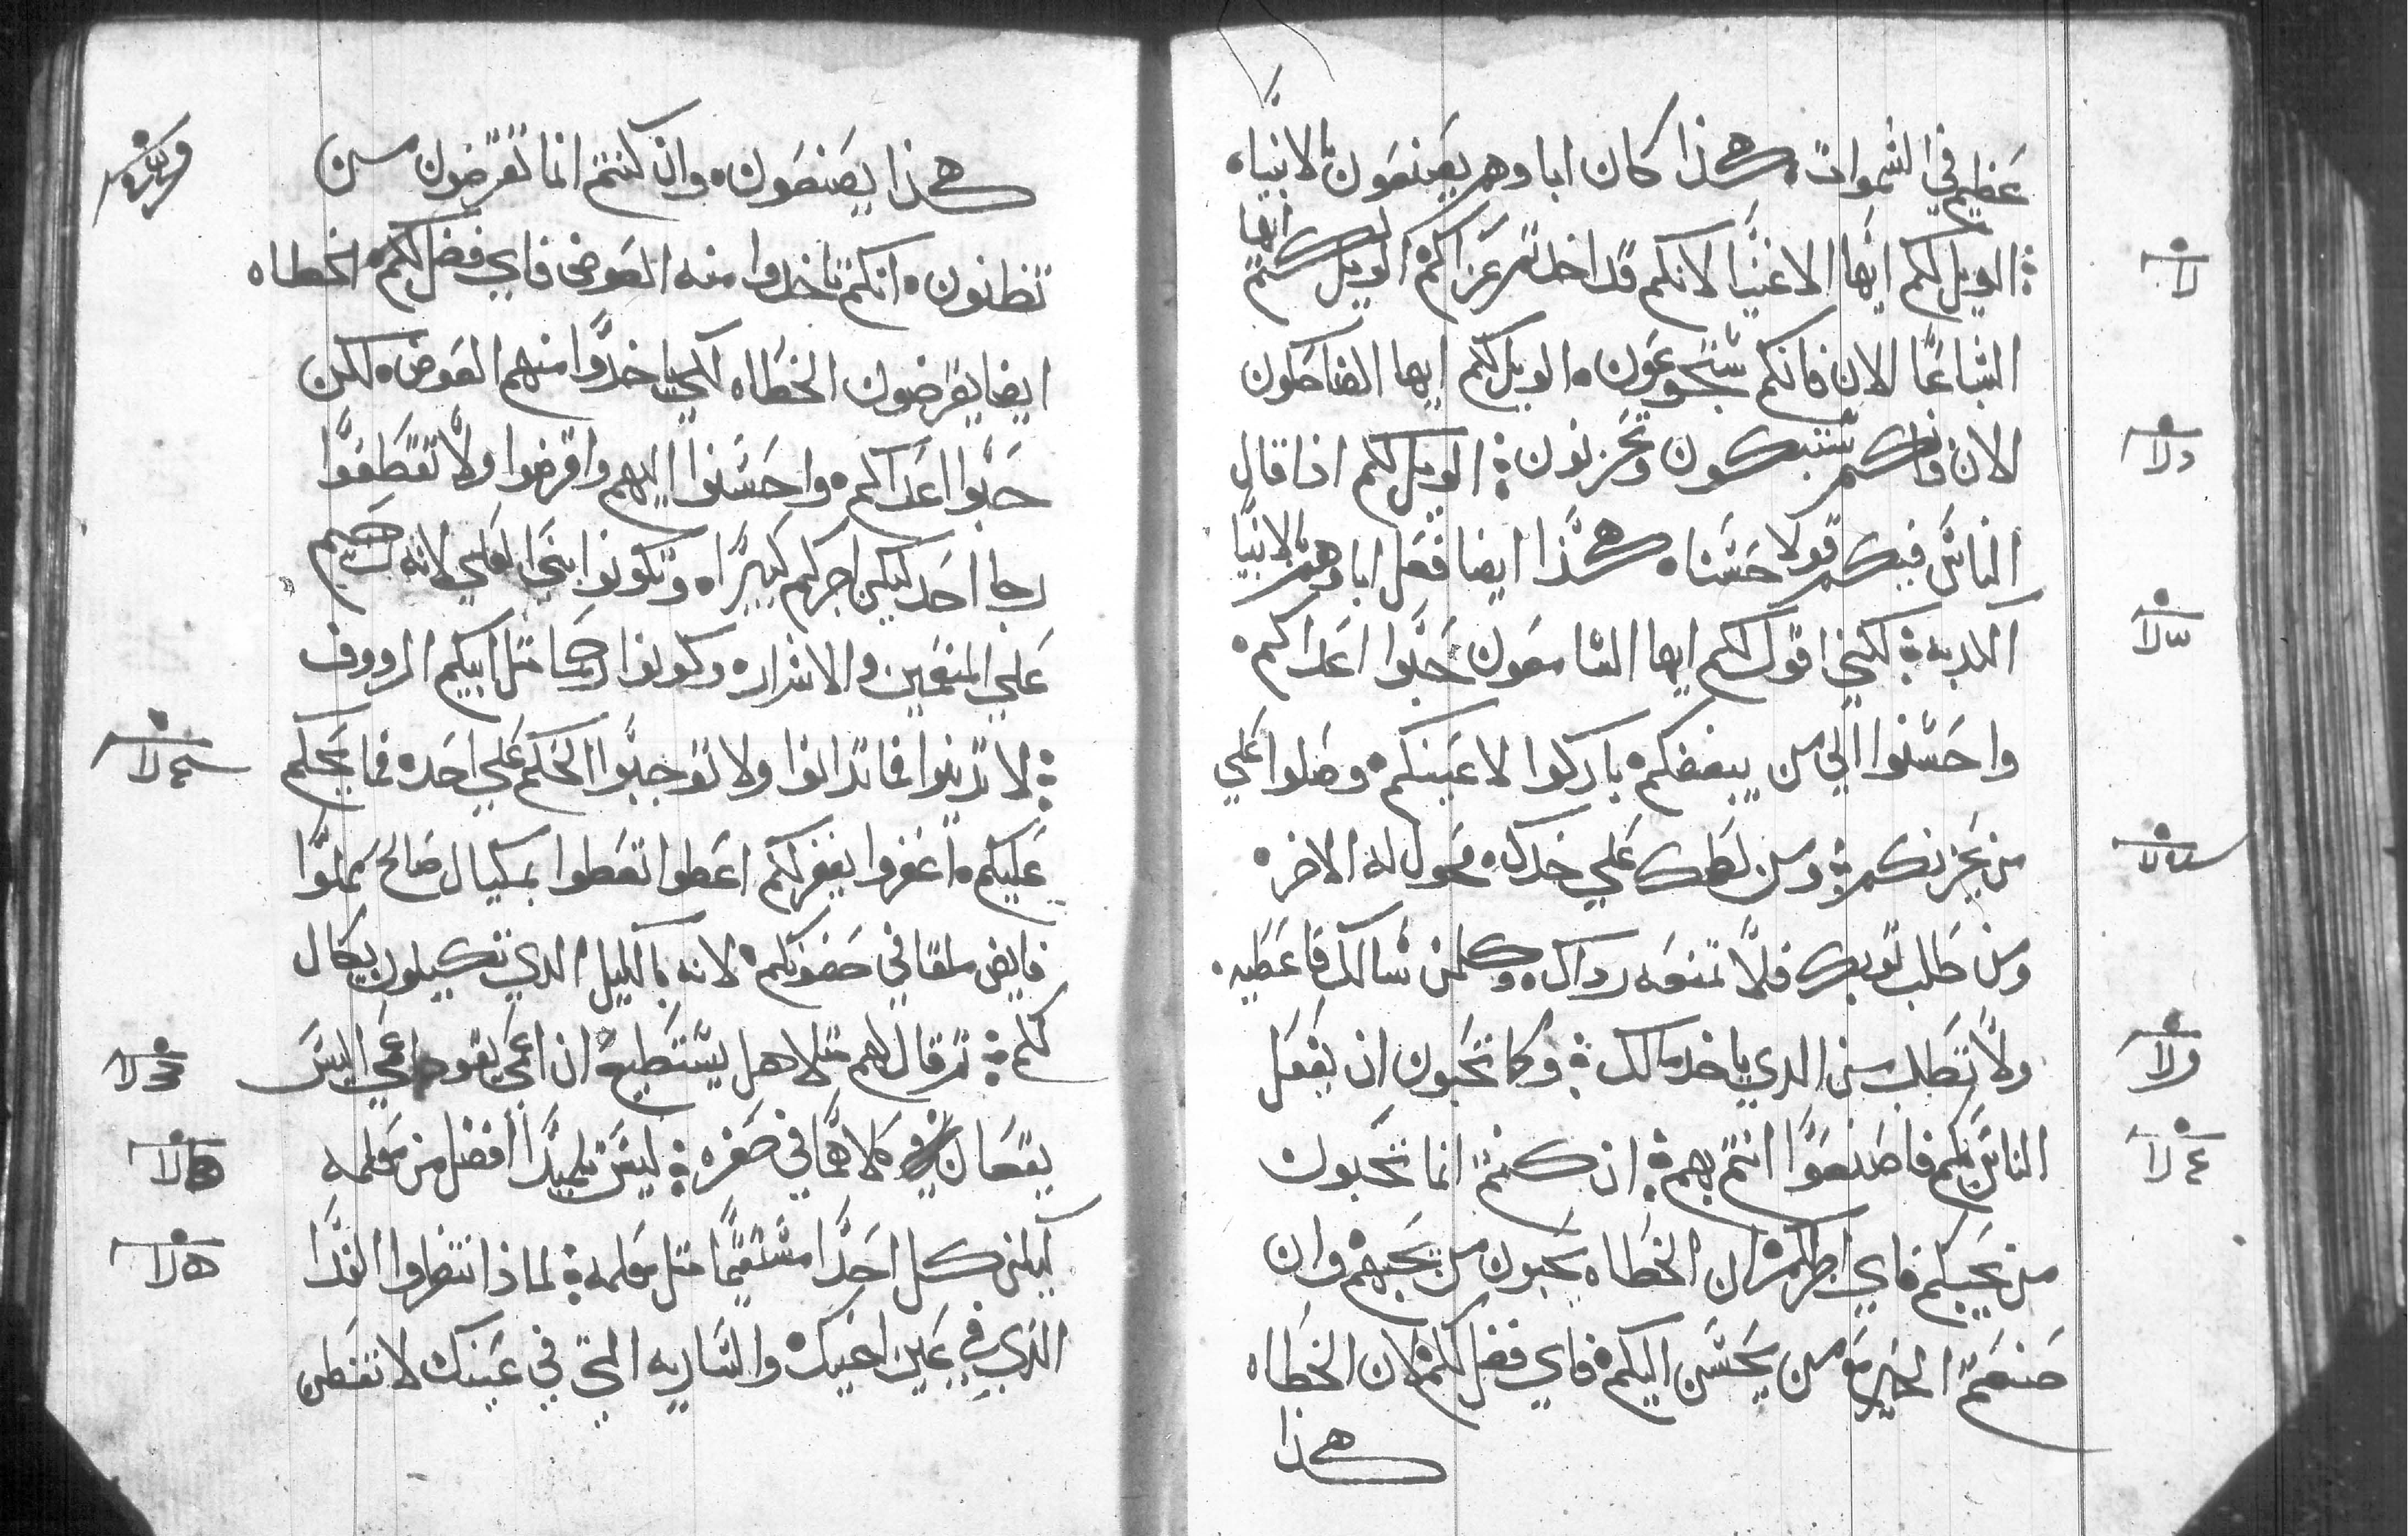 عظيم في السموات هكذا كان اباوهم يصنعون بالانبياء
الويل لكم ايها الاغنيا لانكم قد اخدتم عزاكم الويل لكم ايها
الشباعا الان فانكم ستجوعون الويل لكم ايها الضاحكون
الان فانكم ستبكون وتحزنون الويل لكم اذا قال
الناس فيكم قولا حسنا هكذا ايضا فعل اباوهم بالانبيا
الكدبه لكني اقول لكم ايها السامعون حبوا اعداكم
واحسنوا الي من يبغضكم باركوا لاعنيكم وصلوا علي
من يحزنكم ومن لطمك علي خدك فحول له الاخر
ومن طلب توبك فلا تمنعه رداك وكلمن سالك فاعطيه
ولا تطلب من الدي ياخد مالك وكما تحبون ان يفعل
الناس بكم فاصنعوا انتم بهم ان كنتم انما تحبون
من يحبكم فاي اجر لكم ان الخطاه يحبون من يحبهم وان
صنعتم الخير مع من يحسن اليكم فاي فضل لكم لان الخطاه
هكذا
هكذا يصنعون وان كنتم انما تقرضون من
تظنون انكم تاخدوا منه العوض فاي فضل لكم الخطاه
ايضا يقرضون الخطاه لكي ياخدوا منهم العوض لكن
حبوا اعداكم واحسنوا اليهم واقرضوا ولا تقطعوا
رجا احد ليكن اجركم كبيرا وتكونوا بني العلي لانه رحيم
علي المنعمين والاشرار وكونوا رحما متل ابيكم الرووف
لا تدينوا فما تدانوا ولا توجبوا الحكم علي احد فما يحكم
عليكم اغفروا يغفر لكم اعطوا تعطوا بمكيال صالح مملوا
فايض ملقا في حضونكم لانه بالكيل الدي تكيلون يكال
لكم تم قال لهم متلا هل يستطيع ان اعمي يقود اعمي اليس
يقعان كلاهما في حفره ليس تلميدا افضل من معلمه
ليكن كل احدا مستقيما متل معلمه لماذا تنظروا القدا
الدي في عين اخيك والساريه التي في عينك لا تفطن